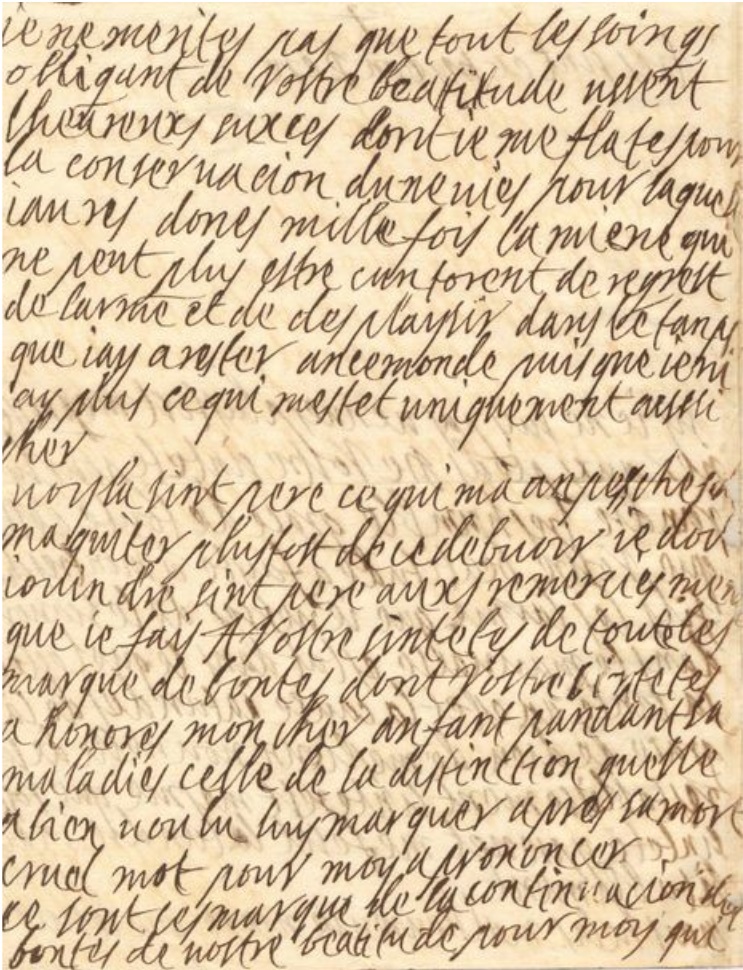 ie ne merites pas que tout les soings
obligant de vostre beatitude ussent
lheureuxs suxces dont ie me flates pour
la conservacion dune vies pour laquel
iaures dones mille fois la miene qui
ne peut plus estre cun torent de regrest
de larme et de desplaysir dans le tamps
que iay a rester ancemonde puis que ieni
ay plus cequi mestet uniquement aussi
cher
voysla sint pere ce qui ma anpesches
maquiter plustost de ce debuoir ie doi
ioindre sint pere auxs remercies men
que ie fays A vostre sintetes de toute les
marque de bontes dont vostre sintetes
a honores mon cher anfant pandant sa
maladies celle de la distinction quelle
a bien voulu luy marquer apres sa mort
cruel mot pour moy a prononcer
ce sont ses marque de la continuacion des
bontes de vostre beatitude pour moy qui